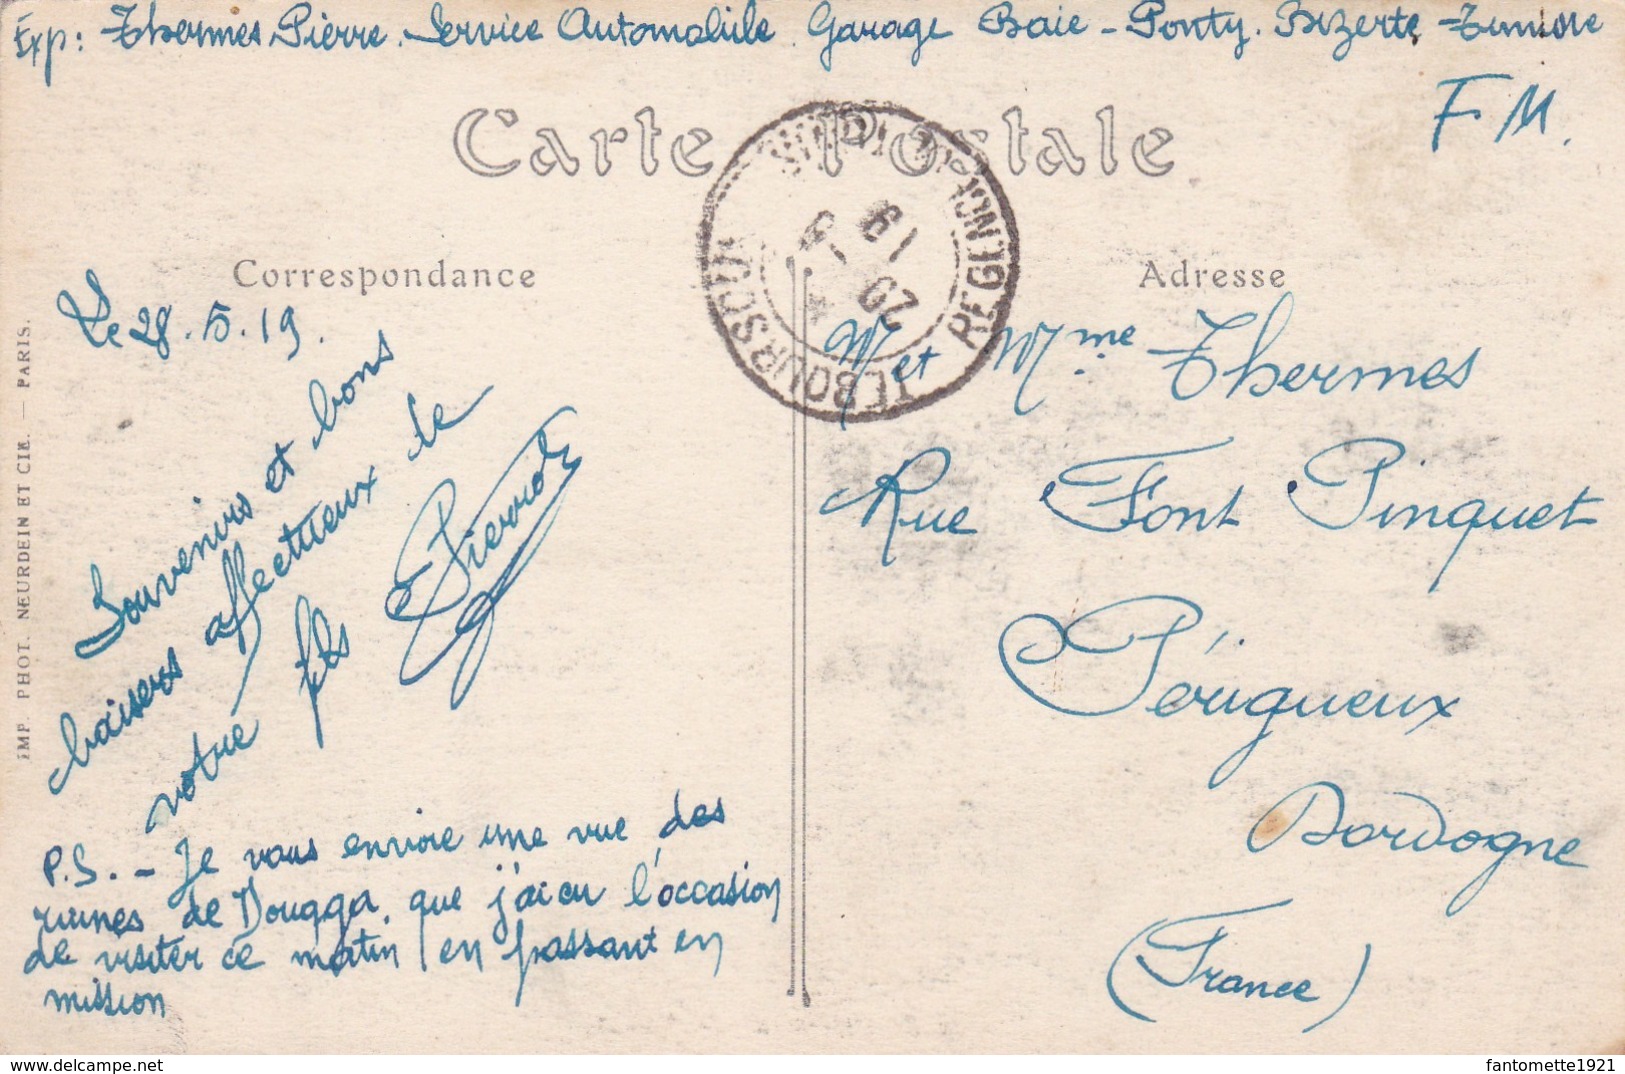 Exp: Thermes Pierre. Service Automobile. Garage Baie-Ponty. Bizerte - Tunisie
F M.
Carte Postale
Correspondance
Adresse
TEBOURSOUK
REGENCE
20
19
Le 28.5.19.
Souvenirs et bons
baisers affectueux de
votre fils Pierrot
P.S. - Je vous envoie une vue des
ruines de Dougga, que j'ai eu l'occasion
de visiter ce matin, en passant en
mission
Mr et Mme Thermes
Rue Font Pinquet
Périgueux
Dordogne
(France)
IMP. PHOT. NEURDEIN ET CIE. — PARIS.
www.delcampe.net
fantomette1921